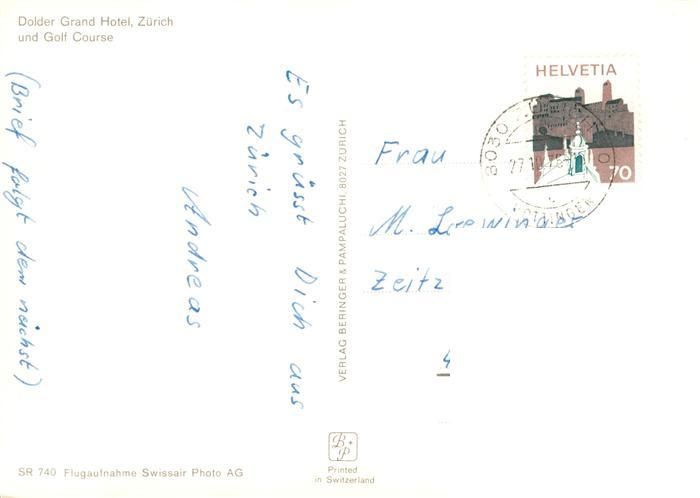 Dolder Grand Hotel, Zürich
und Golf Course
(Brief folgt demnächst)
Es grüsst Dich aus
Zürich
Andreas
VERLAG BERINGER & PAMPALUCHI, 8027 ZÜRICH
HELVETIA
70
8030
HOTTINGEN
Frau
M.
Zeitz
4
B+P
Printed
in Switzerland
SR 740 Flugaufnahme Swissair Photo AG